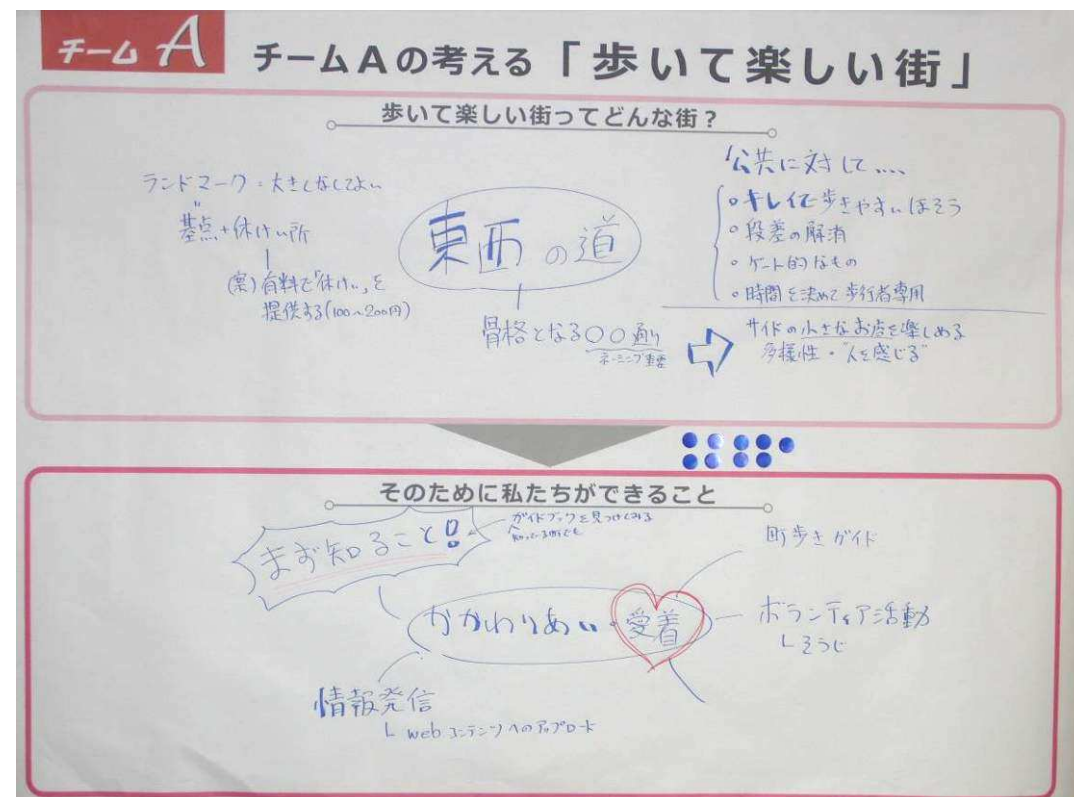 チーム A
チームAの考える「歩いて楽しい街」
歩いて楽しい街ってどんな街?
ランドマーク:大きくなくてよい
〃
基点+休けい所
(案)有料で「休けい」を
提供する(100~200円)
東西の道
骨格となる〇〇通り
ネーミング重要
公共に対して....
○キレイで歩きやすいほそう
○段差の解消
○ゲート的なもの
○時間を決めて歩行者専用
サイドの小さなお店を楽しめる
多様性・"人を感じる"
そのために私たちができること
まず知ること!
ガイドブックを見つけてみる
知っている町でも
かかわりあい・愛着
町歩きガイド
ボランティア活動
└そうじ
情報発信
└webコンテンツへのアップロード